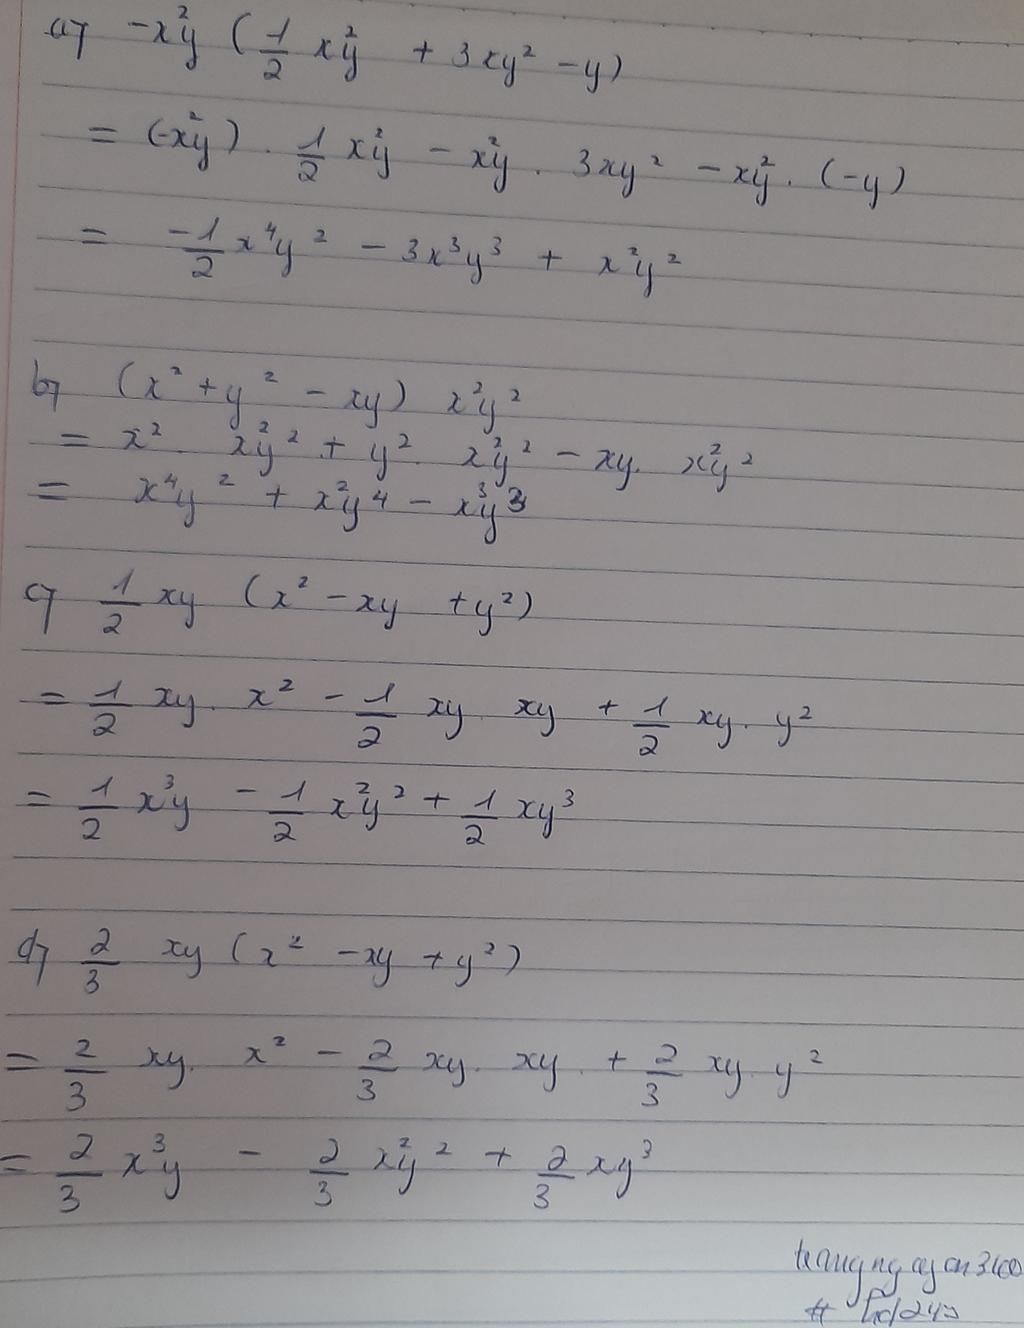 a) -x²y (1/2 x²y + 3xy² - y)
= (-x²y) . 1/2 x²y - x²y . 3xy² - x²y . (-y)
= -1/2 x⁴y² - 3x³y³ + x²y²
b) (x² + y² - xy) x²y²
= x² . x²y² + y² . x²y² - xy . x²y²
= x⁴y² + x²y⁴ - x³y³
c) 1/2 xy (x² - xy + y²)
= 1/2 xy . x² - 1/2 xy . xy + 1/2 xy . y²
= 1/2 x³y - 1/2 x²y² + 1/2 xy³
d) 2/3 xy (x² - xy + y²)
= 2/3 xy . x² - 2/3 xy . xy + 2/3 xy . y²
= 2/3 x³y - 2/3 x²y² + 2/3 xy³